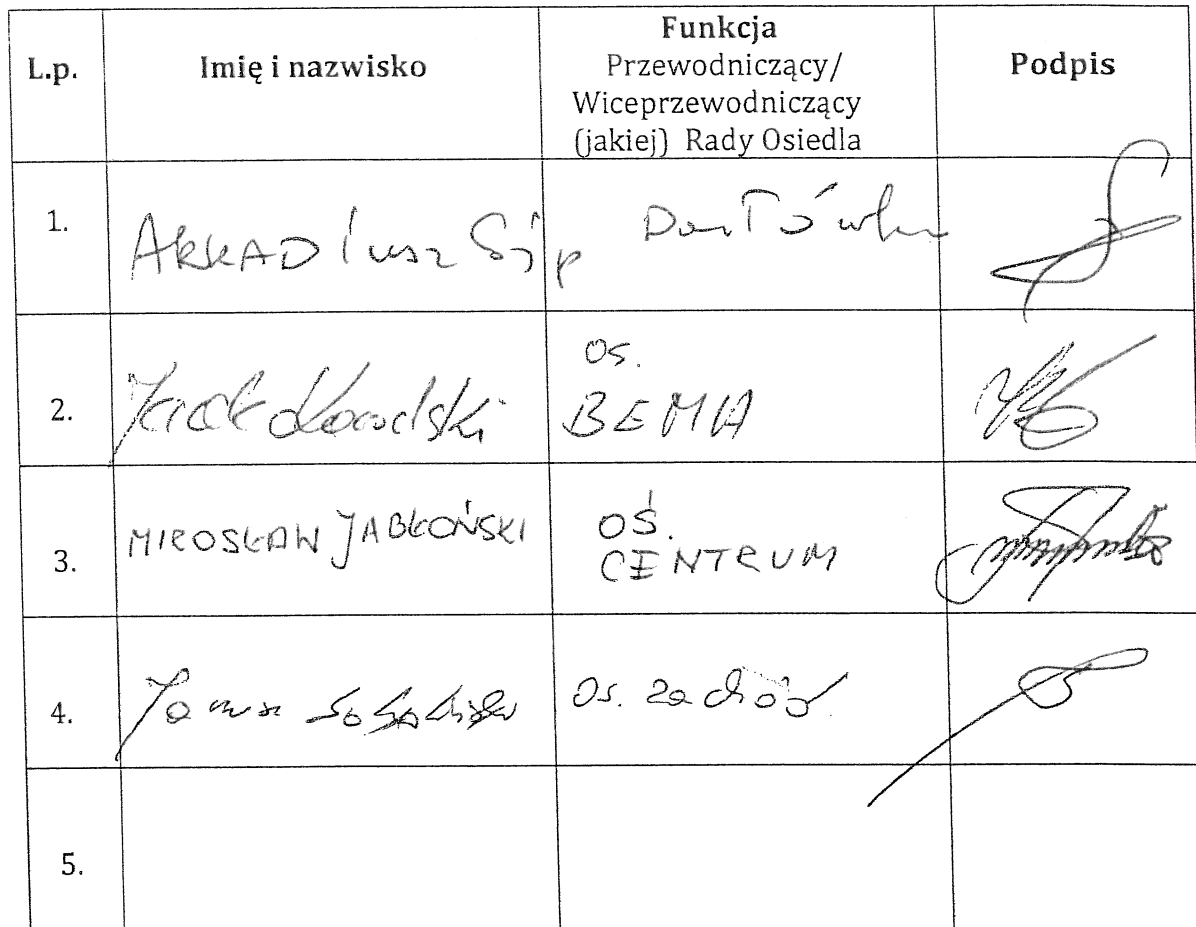 L.p.
Imię i nazwisko
Funkcja
Przewodniczący/
Wiceprzewodniczący
(jakiej) Rady Osiedla
Podpis
1.
ARKADIusz Sip
DarŁówko
2.
Jacek
os.
BEMA
3.
MIROSŁAW JABŁOŃSKI
OŚ.
CENTRUM
4.
Janusz
Os. Zachód
5.